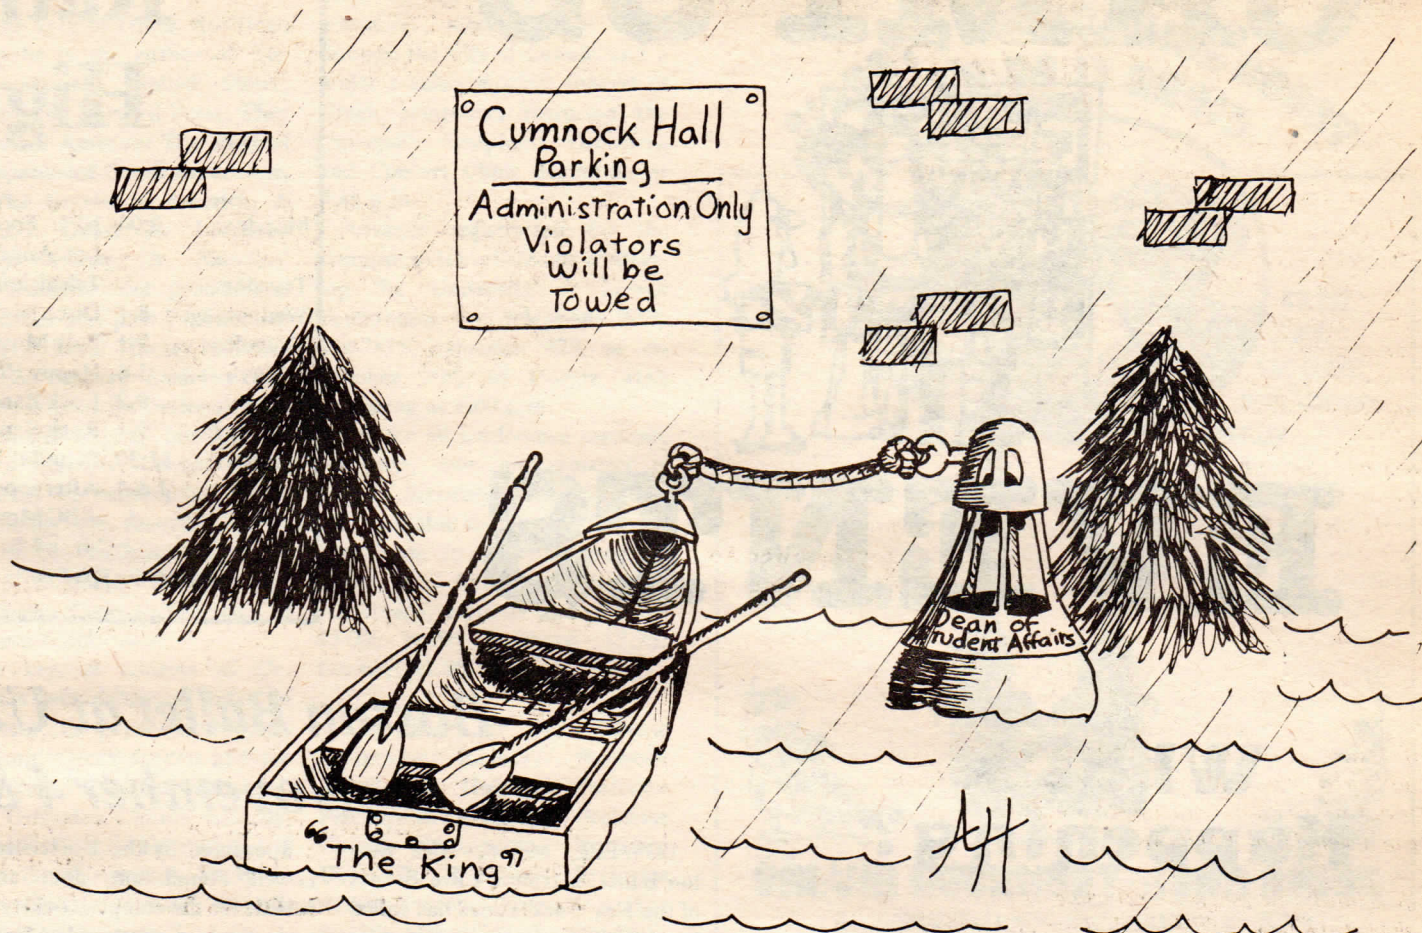 Cumnock Hall
Parking
Administration Only
Violators
will be
Towed
Dean of
Student Affairs
"The King"
AH